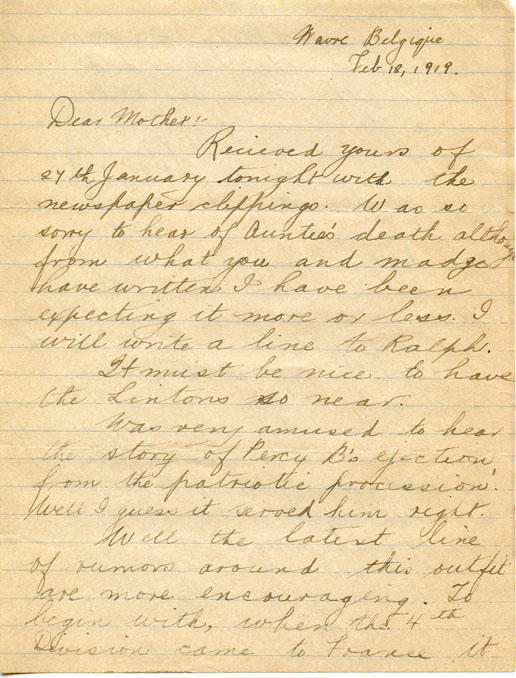 Wavre Belgique
Feb 18, 1919.
Dear Mother:-
Recieved yours of
27th January tonight with the
newspaper clippings. Was so
sorry to hear of Auntie's death although
from what you and Madge
have written I have been
expecting it more or less. I
will write a line to Ralph.
It must be nice to have
the Lintons so near.
Was very amused to hear
the story of Percy B's ejection
from the patriotic procession.
Well I guess it served him right.
Well the latest line
of rumors around this outfit
are more encouraging. To
begin with, when the 4th
Division came to France it